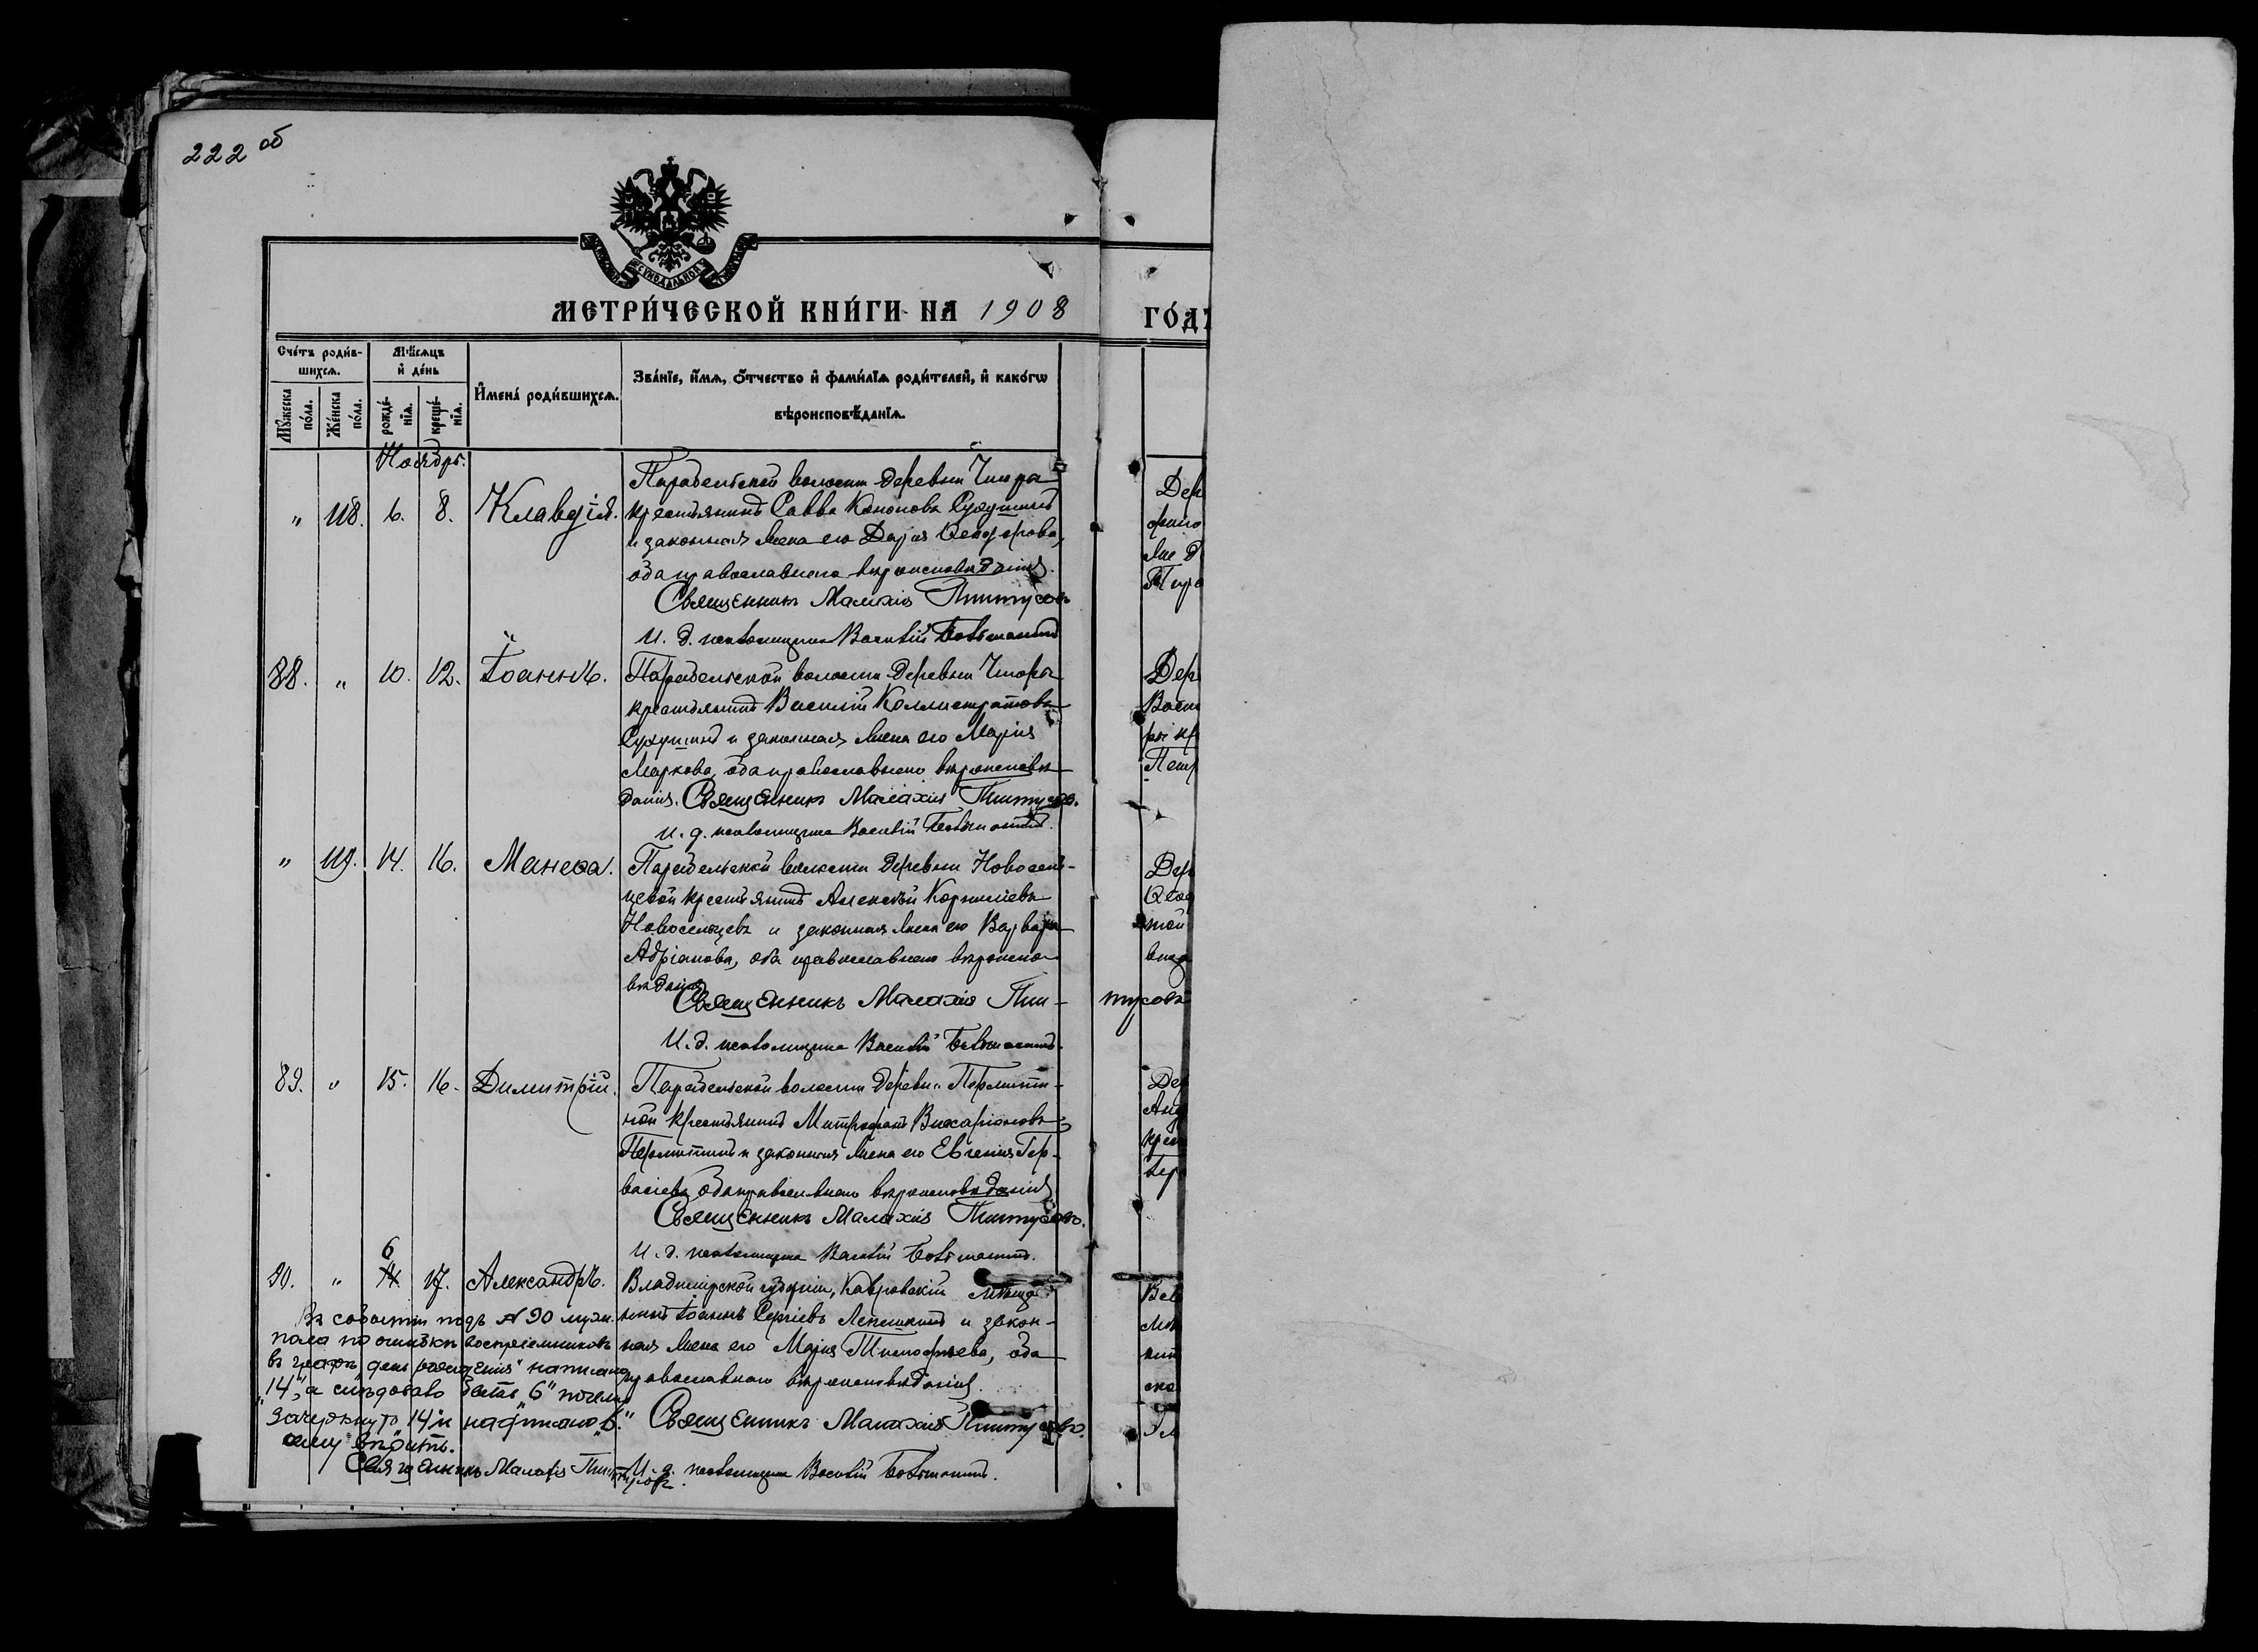 222 об
СѴНОДАЛЬНОЙ
МЕТРИ́ЧЕСКОЙ КНИ́ГИ НА 1908
ГО́ДЪ
Сче́тъ роди́в-
шихсѧ.
Мѣ́сѧцъ
и҆ де́нь
И҆мена̀ роди́вшихсѧ.
Зва́нїе, и҆́мѧ, ѻ҆́тчество и҆ фами́лїѧ роди́телей, и҆ како́гѡ
вѣроисповѣ́данїѧ.
Мꙋ́жеска по́ла.
Же́нска по́ла.
рожде́нїѧ.
креще́нїѧ.
Ноябрь.
" 118. 6. 8. Клавдія.
Парабельской волости деревни Чигара
крестьянинъ Савва Кононовъ Сухушинъ
и законная жена его Дарія Ѳеодорова,
оба православнаго вѣроисповѣданія.
Священникъ Малахія Пинтусовъ
И. д. псаломщика Василій
88. " 10. 12. Іоаннъ.
Парабельской волости деревни
крестьянинъ Василій Каллистратовъ
Сухушинъ и законная жена его Марія
Маркова, оба православнаго вѣроисповѣ
данія. Священникъ Малахія Пинтусовъ.
и. д. псаломщика Василій
" 119. 14. 16. Манеѳа.
Парабельской волости деревни Новосель-
цевой крестьянинъ Алексѣй Корниліевъ
Новосельцевъ и законная жена его Варвара
Адріанова, оба православнаго вѣроиспо
вѣданія
Священникъ Малахія Пин-
тусовъ
И. д. псаломщика Василій
89. " 15. 16. Димитрій.
Парабельской волости деревни Перемити-
ной крестьянинъ Митрофанъ Виссаріоновъ
Перемитинъ и законная жена его Евгенія Гер-
васіева, оба православнаго вѣроисповѣданія
Священникъ Малахія Пинтусовъ.
И. д. псаломщика Василій
6
90. " 14 17. Александръ.
Владимірской губерніи, Ковровскій мѣща
нинъ Іоаннъ Сергіевъ Лепешкинъ и закон-
ная жена его Марія Тимофеева, оба
православнаго вѣроисповѣданія.
Священникъ Малахія Пинтусовъ.
И. д. псаломщика Василій
Въ событіи подъ № 90 муж.
пола по ошибкѣ воспріемниковъ
въ графѣ „день рожденія" написано
„14", а слѣдовало быть „6" почему
зачеркнуто „14" и написано „6."
сему вѣрить.
Священникъ Малахія Пинтусовъ.
Дер
Дер
Васи
Дер
вѣд
Дер
Анд
крес